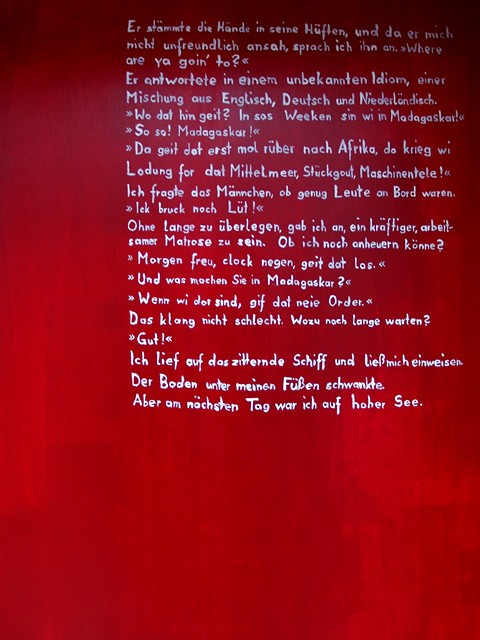 Er stämmte die Hände in seine Hüften, und da er mich
nicht unfreundlich ansah, sprach ich ihn an. »Where
are ya goin' to?«
Er antwortete in einem unbekannten Idiom, einer
Mischung aus Englisch, Deutsch und Niederländisch.
»Wo dat hin geit? In sos Weeken sin wi in Madagaskar!«
»So so! Madagaskar!«
»Da geit dat erst mol rüber nach Afrika, do krieg wi
Lodung for dat Mittelmeer, Stückgout, Maschinentele!«
Ich fragte das Männchen, ob genug Leute an Bord waren.
»Ick bruck noch Lüt!«
Ohne lange zu überlegen, gab ich an, ein kräftiger, arbeit-
samer Matrose zu sein. Ob ich noch anheuern könne?
»Morgen freu, clock negen, geit dat los.«
»Und was machen Sie in Madagaskar?«
»Wenn wi dot sind, gif dat neie Order.«
Das klang nicht schlecht. Wozu noch lange warten?
»Gut!«
Ich lief auf das zitternde Schiff und ließ mich einweisen.
Der Boden unter meinen Füßen schwankte.
Aber am nächsten Tag war ich auf hoher See.